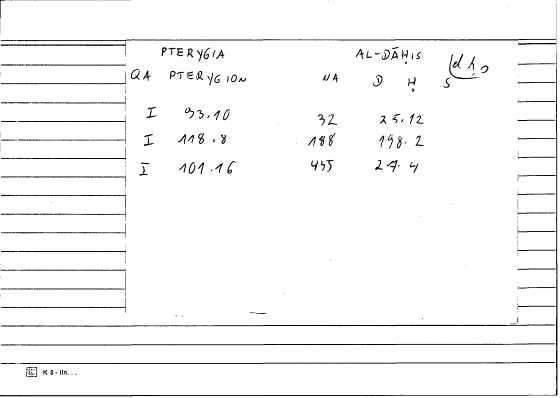 PTERYGIA AL-DĀḤIS
QA PTERYGION NA D Ḥ S
I 93.10 32 25.12
I 118.8 188 198.2
I 101.16 445 27.4
K 5 - lin. . .